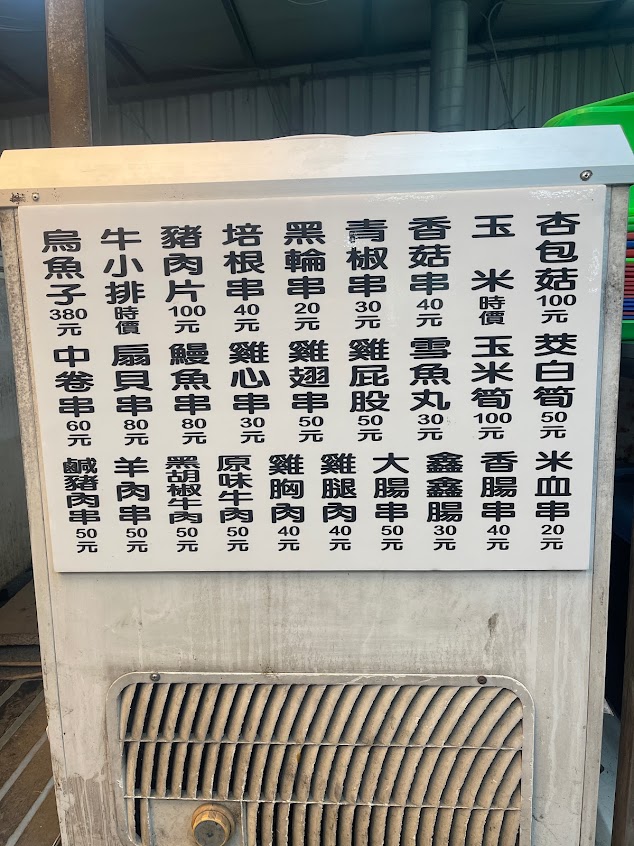 杏包菇100元
玉米時價
香菇串40元
青椒串30元
黑輪串20元
培根串40元
豬肉片100元
牛小排時價
烏魚子380元
茭白筍50元
玉米筍100元
雪魚丸30元
雞屁股50元
雞翅串50元
雞心串30元
鰻魚串80元
扇貝串80元
中卷串60元
米血串20元
香腸串40元
鑫鑫腸30元
大腸串50元
雞腿肉40元
雞胸肉40元
原味牛肉50元
黑胡椒牛肉50元
羊肉串50元
鹹豬肉串50元